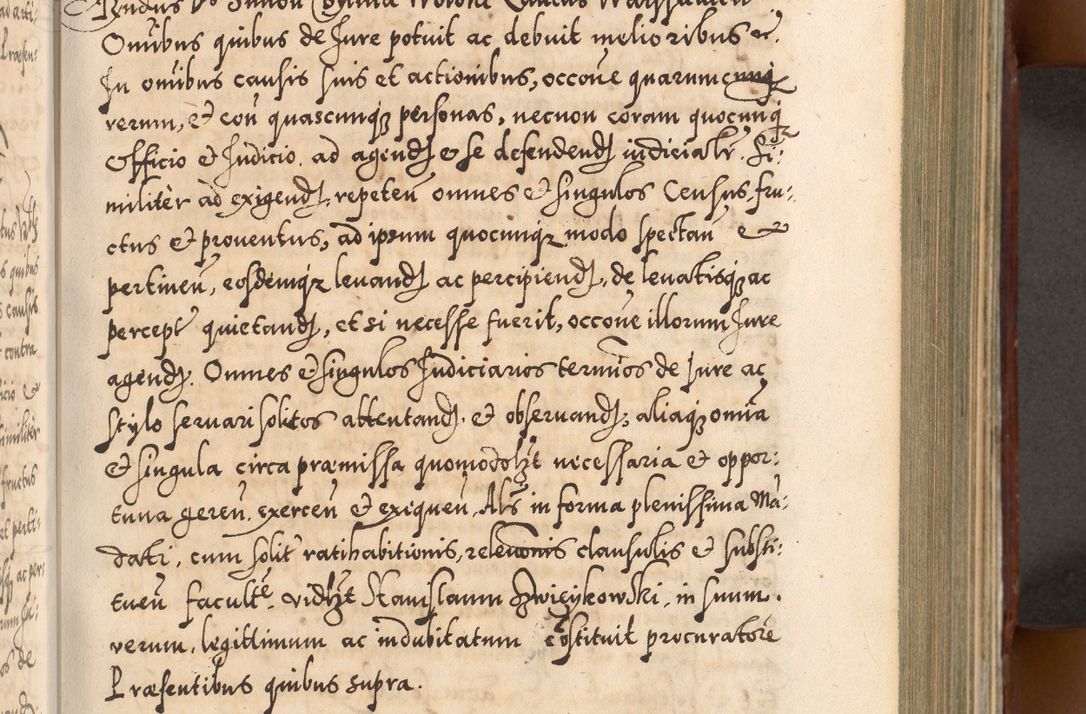 Omībus quibus de Jure potuit ac debuit melioribus etc.
In omībus causis suis et actionibus, occōne quarumcunq
rerum, et coñ quascunqz personas, necnon coram quocunq
Officio et Judicio. ad agendz et se defendendz iudicialr. Si:
militer ad exigendz, repeteñ omnes et singulos Census, fru:
ctus et prouentus, ad ipsum quocunqz modo spectañ et
pertineñ, eosdemqz leuandz ac percipiendz, de leuatisqz ac
percept quietandz, et si necesse fuerit, occōne illorum Jure
agendz. Omnes et singulos Judiciarios termīos de jure ac
stylo seruari solitos attentandz. et obseruandz, aliaqz omīa
et singula circa præmissa quomodolzt necessaria et oppor:
tuna gereñ, exerceñ et exiqueñ. Als in forma plenissima Mā:
dati, cum solit ratihabitionis, releuōnis clausulis et substi:
tueñ facultē. vidlzt Stanislaum Zwięykowski, in suum.
verum, legittimum ac indubitatum cōstituit procuratorē
Præsentibus quibus supra.